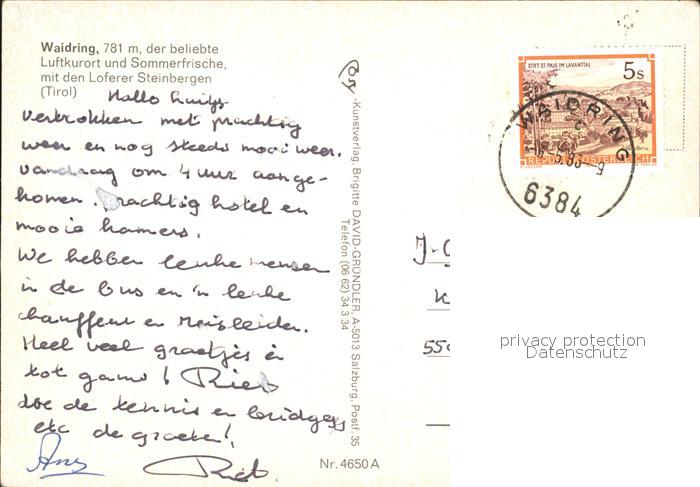 Waidring, 781 m, der beliebte
Luftkurort und Sommerfrische,
mit den Loferer Steinbergen
(Tirol)
Hallo huisjs
vertrokken met prachtig
weer en nog steeds mooi weer.
vandaag om 4 uur aange-
komen. Prachtig hotel en
mooie kamers.
We hebben leuke mensen
in de bus en 'n leuke
chauffeur en Reisleider.
Heel veel groetjes en
tot gauw! Riet
doe de tennis en bridgers
etc de groeten!
Ans Riet.
-Kunstverlag, Brigitte DAVID-GRÜNDLER, A-5013 Salzburg, Postf. 35
Telefon (06 62) 34 3 34
Nr. 4650 A
STIFT ST. PAUL IM LAVANTTAL
5 s
REPUBLIK ÖSTERREICH
WAIDRING
6384
privacy protection
Datenschutz